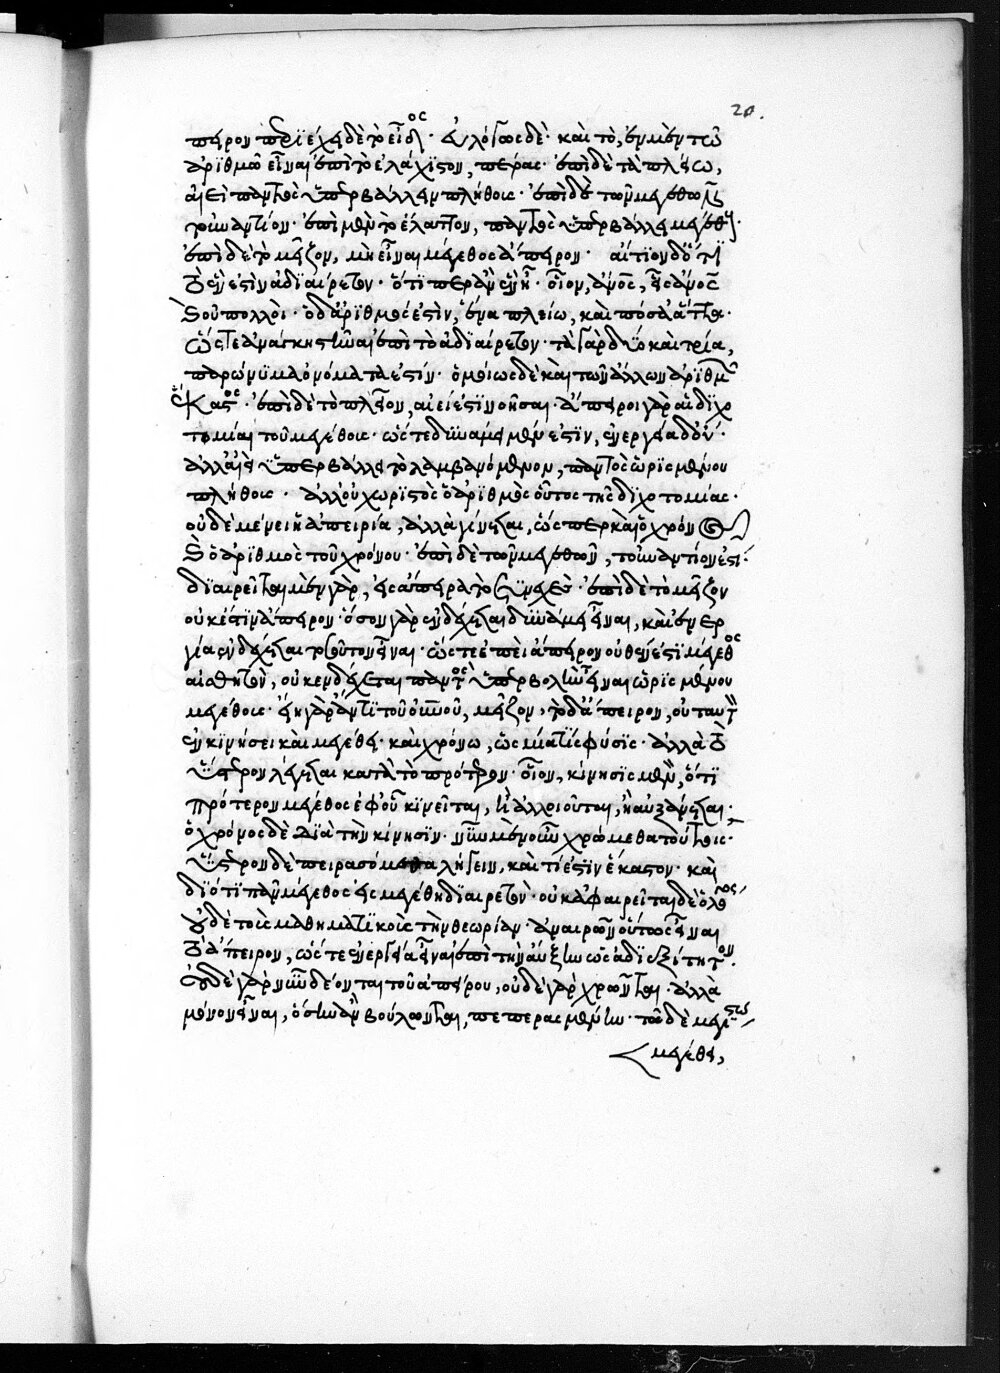 20.
πειρον περιέχει δὲ τὸ εἶδος. εὐλόγως δὲ καὶ τὸ, ἐν μὲν τῷ
ἀριθμῷ εἶναι ἐπὶ τὸ ἐλάχιστον, πέρας. ἐπὶ δὲ τὰ πλείω,
αἰεὶ παντὸς ὑπερβάλλειν πλήθους. ἐπὶ δὲ τῶν μεγεθῶν
τοὐναντίον. ἐπὶ μὲν τὸ ἔλαττον, παντὸς ὑπερβάλλει μεγέθους.
ἐπὶ δὲ τὸ μεῖζον, μὴ εἶναι μέγεθος ἄπειρον. αἴτιον δ' ὅτι
τὸ ἕν ἐστιν ἀδιαίρετον. ὅτι περ ἂν ἓν ᾖ. οἷον, ἄνος, εἷς ἄνος
καὶ οὐ πολλοί. ὁ δ' ἀριθμός ἐστιν, ἕνα πλείω, καὶ πόσ' ἄττα.
ὥστε ἀνάγκη στῆναι ἐπὶ τὸ ἀδιαίρετον. τὰ γὰρ δύο καὶ τρία,
παρώνυμα ὀνόματα ἐστίν. ὁμοίως δὲ καὶ τῶν ἄλλων ἀριθμῶν
ἕκαστος. ἐπὶ δὲ τὸ πλεῖον, αἰεὶ ἔστι νοῆσαι. ἄπειροι γὰρ αἱ διχο
τομίαι τοῦ μεγέθους. ὥστε δυνάμει μέν ἐστιν, ἐνεργείᾳ δ' οὔ.
ἀλλ' ἀεὶ ὑπερβάλλει τὸ λαμβανόμενον, παντὸς ὡρισμένου
πλήθους. ἀλλ' οὐ χωριστὸς ὁ ἀριθμὸς οὗτος τῆς διχοτομίας.
οὐδὲ μένει ἡ ἀπειρία, ἀλλὰ γίνεται, ὥσπερ καὶ ὁ χρόνος
καὶ ὁ ἀριθμὸς τοῦ χρόνου. ἐπὶ δὲ τῶν μεγεθῶν, τοὐναντίον ἐστι.
διαιρεῖται μὲν γὰρ, εἰς ἄπειρα τὸ συνεχές. ἐπὶ δὲ τὸ μεῖζον
οὐκ ἔστιν ἄπειρον. ὅσον γὰρ ἐνδέχεται δυνάμει εἶναι, καὶ ἐνερ
γείᾳ ἐνδέχεται τοσοῦτον εἶναι. ὥστε ἐπεὶ ἄπειρον οὐθέν ἐστι μέγεθος
αἰσθητὸν, οὐκ ἐνδέχεται παντὸς ὑπερβολὴν εἶναι ὡρισμένου
μεγέθους. εἴη γὰρ ἄν τι τοῦ οὐνοῦ, μεῖζον. τὸ δ' ἄπειρον, οὐ ταυτὸν
ἐν κινήσει καὶ μεγέθει. καὶ χρόνῳ, ὡς μία τις φύσις. ἀλλὰ τὸ
ὕστερον λέγεται κατὰ τὸ πρότερον. οἷον, κίνησις μὲν, ὅτι
πρότερον μέγεθος ἐφ' οὗ κινεῖται, ἢ ἀλλοιοῦται, ἢ αὐξάνεται.
ὁ χρόνος δὲ διὰ τὴν κίνησιν. νῦν μὲν οὖν χρώμεθα τούτοις.
ὕστερον δὲ πειρασόμεθα λέγειν, καὶ τί ἐστιν ἕκαστον. καὶ
διότι πᾶν μέγεθος εἰς μεγέθη διαιρετόν. οὐκ ἀφαιρεῖται δὲ ὁ λόγος
οὐδὲ τοὺς μαθηματικοὺς τὴν θεωρίαν. ἀναιρῶν οὕτως εἶναι
τὸ ἄπειρον, ὥστε ἐνεργείᾳ εἶναι ἐπὶ τὴν αὔξην ὡς ἀδιεξίτητον.
οὐδὲ γὰρ νῦν δέονται τοῦ ἀπείρου, οὐδὲ γὰρ χρῶνται. ἀλλὰ
μόνον εἶναι, ὅσην ἂν βούλωνται, πεπερασμένην. τῷ δὲ μεγίστῳ
μεγέθει,